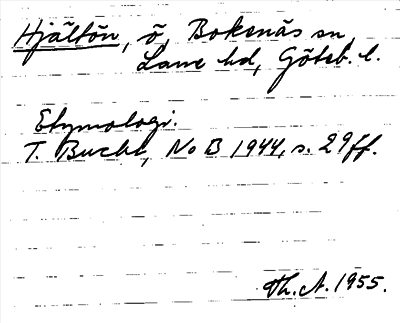 Hjältön, ö, Bokenäs sn,
Lane hd, Göteb. l.
Etymologi.
T. Bucht, No B 1944, s. 29 ff.
Th. A. 1955.